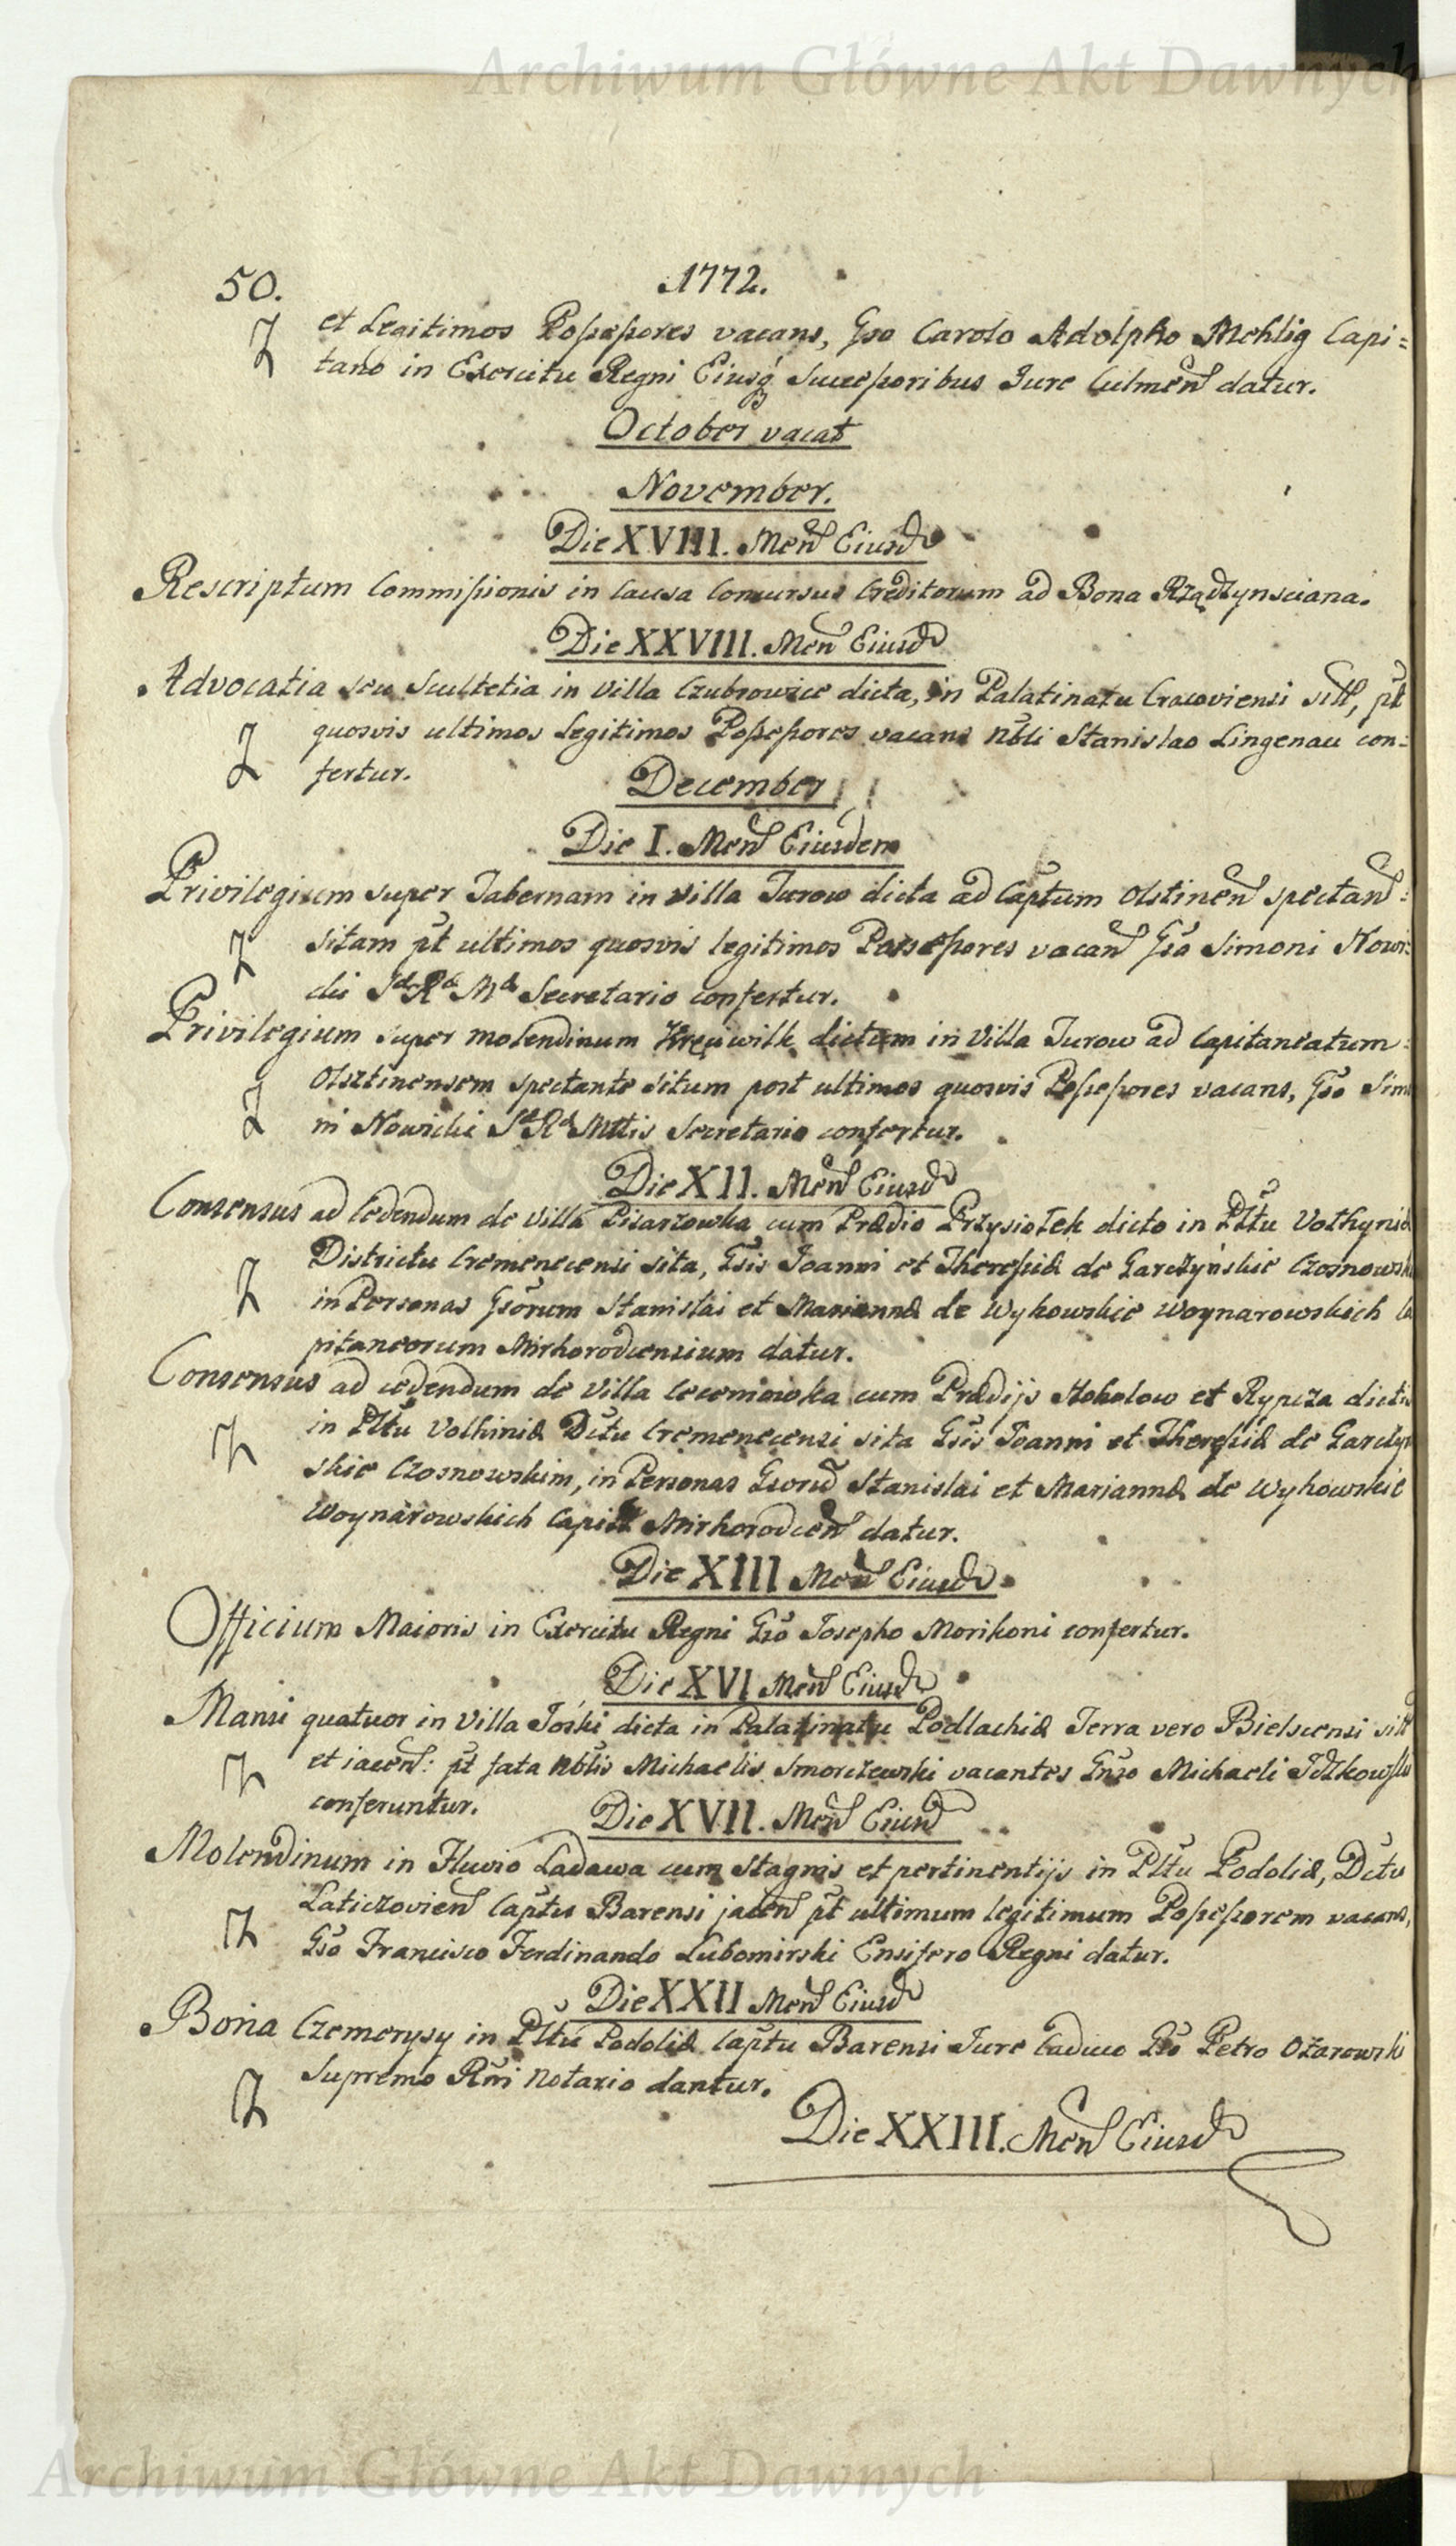 Archiwum Główne Akt Dawnych
50. 1772.
et Legitimos Possessores vacans, Gso Carolo Adolpho Mehlig Capi=
tano in Exercitu Regni Eiusq Successoribus Jure Culmen datur.
October vacat
November.
Die XVIII. Men Eiusd
Rescriptum Commissionis in Causa Concursus Creditorum ad Bona Rządzynsciana.
Die XXVIII. Men Eiusd
Advocatia seu Scultetia in Villa Czubrowice dicta, in Palatinatu Cracoviensi sitt, pt
quosvis ultimos Legitimos Possessores vacans Nbli Stanislao Lingenau con=
fertur.
December
Die I. Men Eiusdem
Privilegium super Tabernam in Villa Turow dicta ad Captum Olstinen spectan=
sitam pt ultimos quosvis legitimos Possessores vacan Gso Simoni Nowi=
cki S R M Secretario confertur.
Privilegium super molendinum dictum in Villa Turow ad Capitaneatum
Olsztinensem spectante situm post ultimos quosvis Possessores vacans, Gso Simo
ni Nowicki S R Mttis Secretario confertur.
Die XII. Men Eiusd
Consensus ad Cedendum de Villa Pisarzowka cum Prædio Przysiołek dicto in Pltu Volhyniæ
Districtu Cremenecensi sita, Gsis Joanni et Theresiæ de Garczyńskie Czosnowski
in Personas Gsorum Stanislai et Mariannæ de Wyhowskie Woynarowskich Ca
pitaneorum Mirhorodcensium datur.
Consensus ad cedendum de Villa cum Prædijs Hoholow et Rypcza dictis
in Pltu Volhiniæ Dctu Cremenecensi sita Gsis Joanni et Theresiæ de Garczyn
skie Czosnowskim, in Personas Gsoru Stanislai et Mariannæ de Wyhowskie
Woynarowskich Capitt Mirhorodcen datur.
Die XIII Men Eiusd
Officium Maioris in Exercitu Regni Gso Josepho Morikoni confertur.
Die XVI Men Eiusd
Mansi quatuor in Villa Toski dicta in Palatinatu Podlachiæ Terra vero Bielscensi sitt
et iacen: pt fata Nblis Michaelis Smorczewski vacantes Gnso Michaeli Idzkowski
conferuntur.
Die XVII. Men Eiusd
Molendinum in Fluvio Ladawa cum Stagnis et pertinentijs in Pltu Podoliæ, Dctu
Laticzovien Captu Barensi jacen pt ultimum legitimum Possessorem vacans,
Gso Francisco Ferdinando Lubomirski Ensifero Regni datur.
Die XXII Men Eiusd
Bona Czemerysy in Pltu Podoliæ Captu Barensi Jure Caduco Gso Petro Ożarowski
Supremo Rni Notario dantur.
Die XXIII. Men Eiusd
Archiwum Główne Akt Dawnych